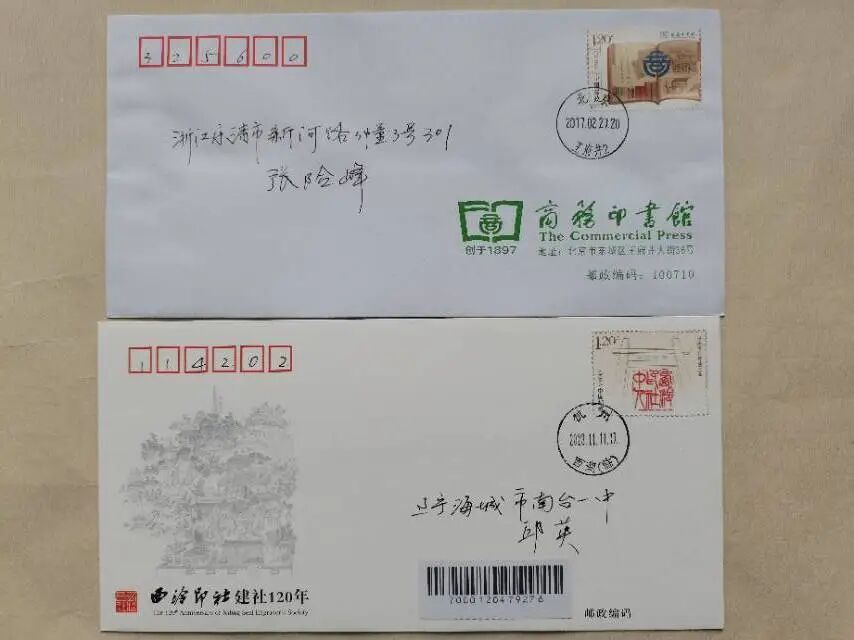 325600
1.20元
北京
2017.02.27.20
浙江乐清市新河路
3号301
张险峰
商務印書館
The Commercial Press
创于1897
地址：北京市东城区王府井大街36号
邮政编码：100710
114202
1.20元
杭州
11.11.17
辽宁海城市南台一中
邱英
西泠印社建社120年
The 120th Anniversary of Xiling Seal Engraver's Society
7000120479276
邮政编码